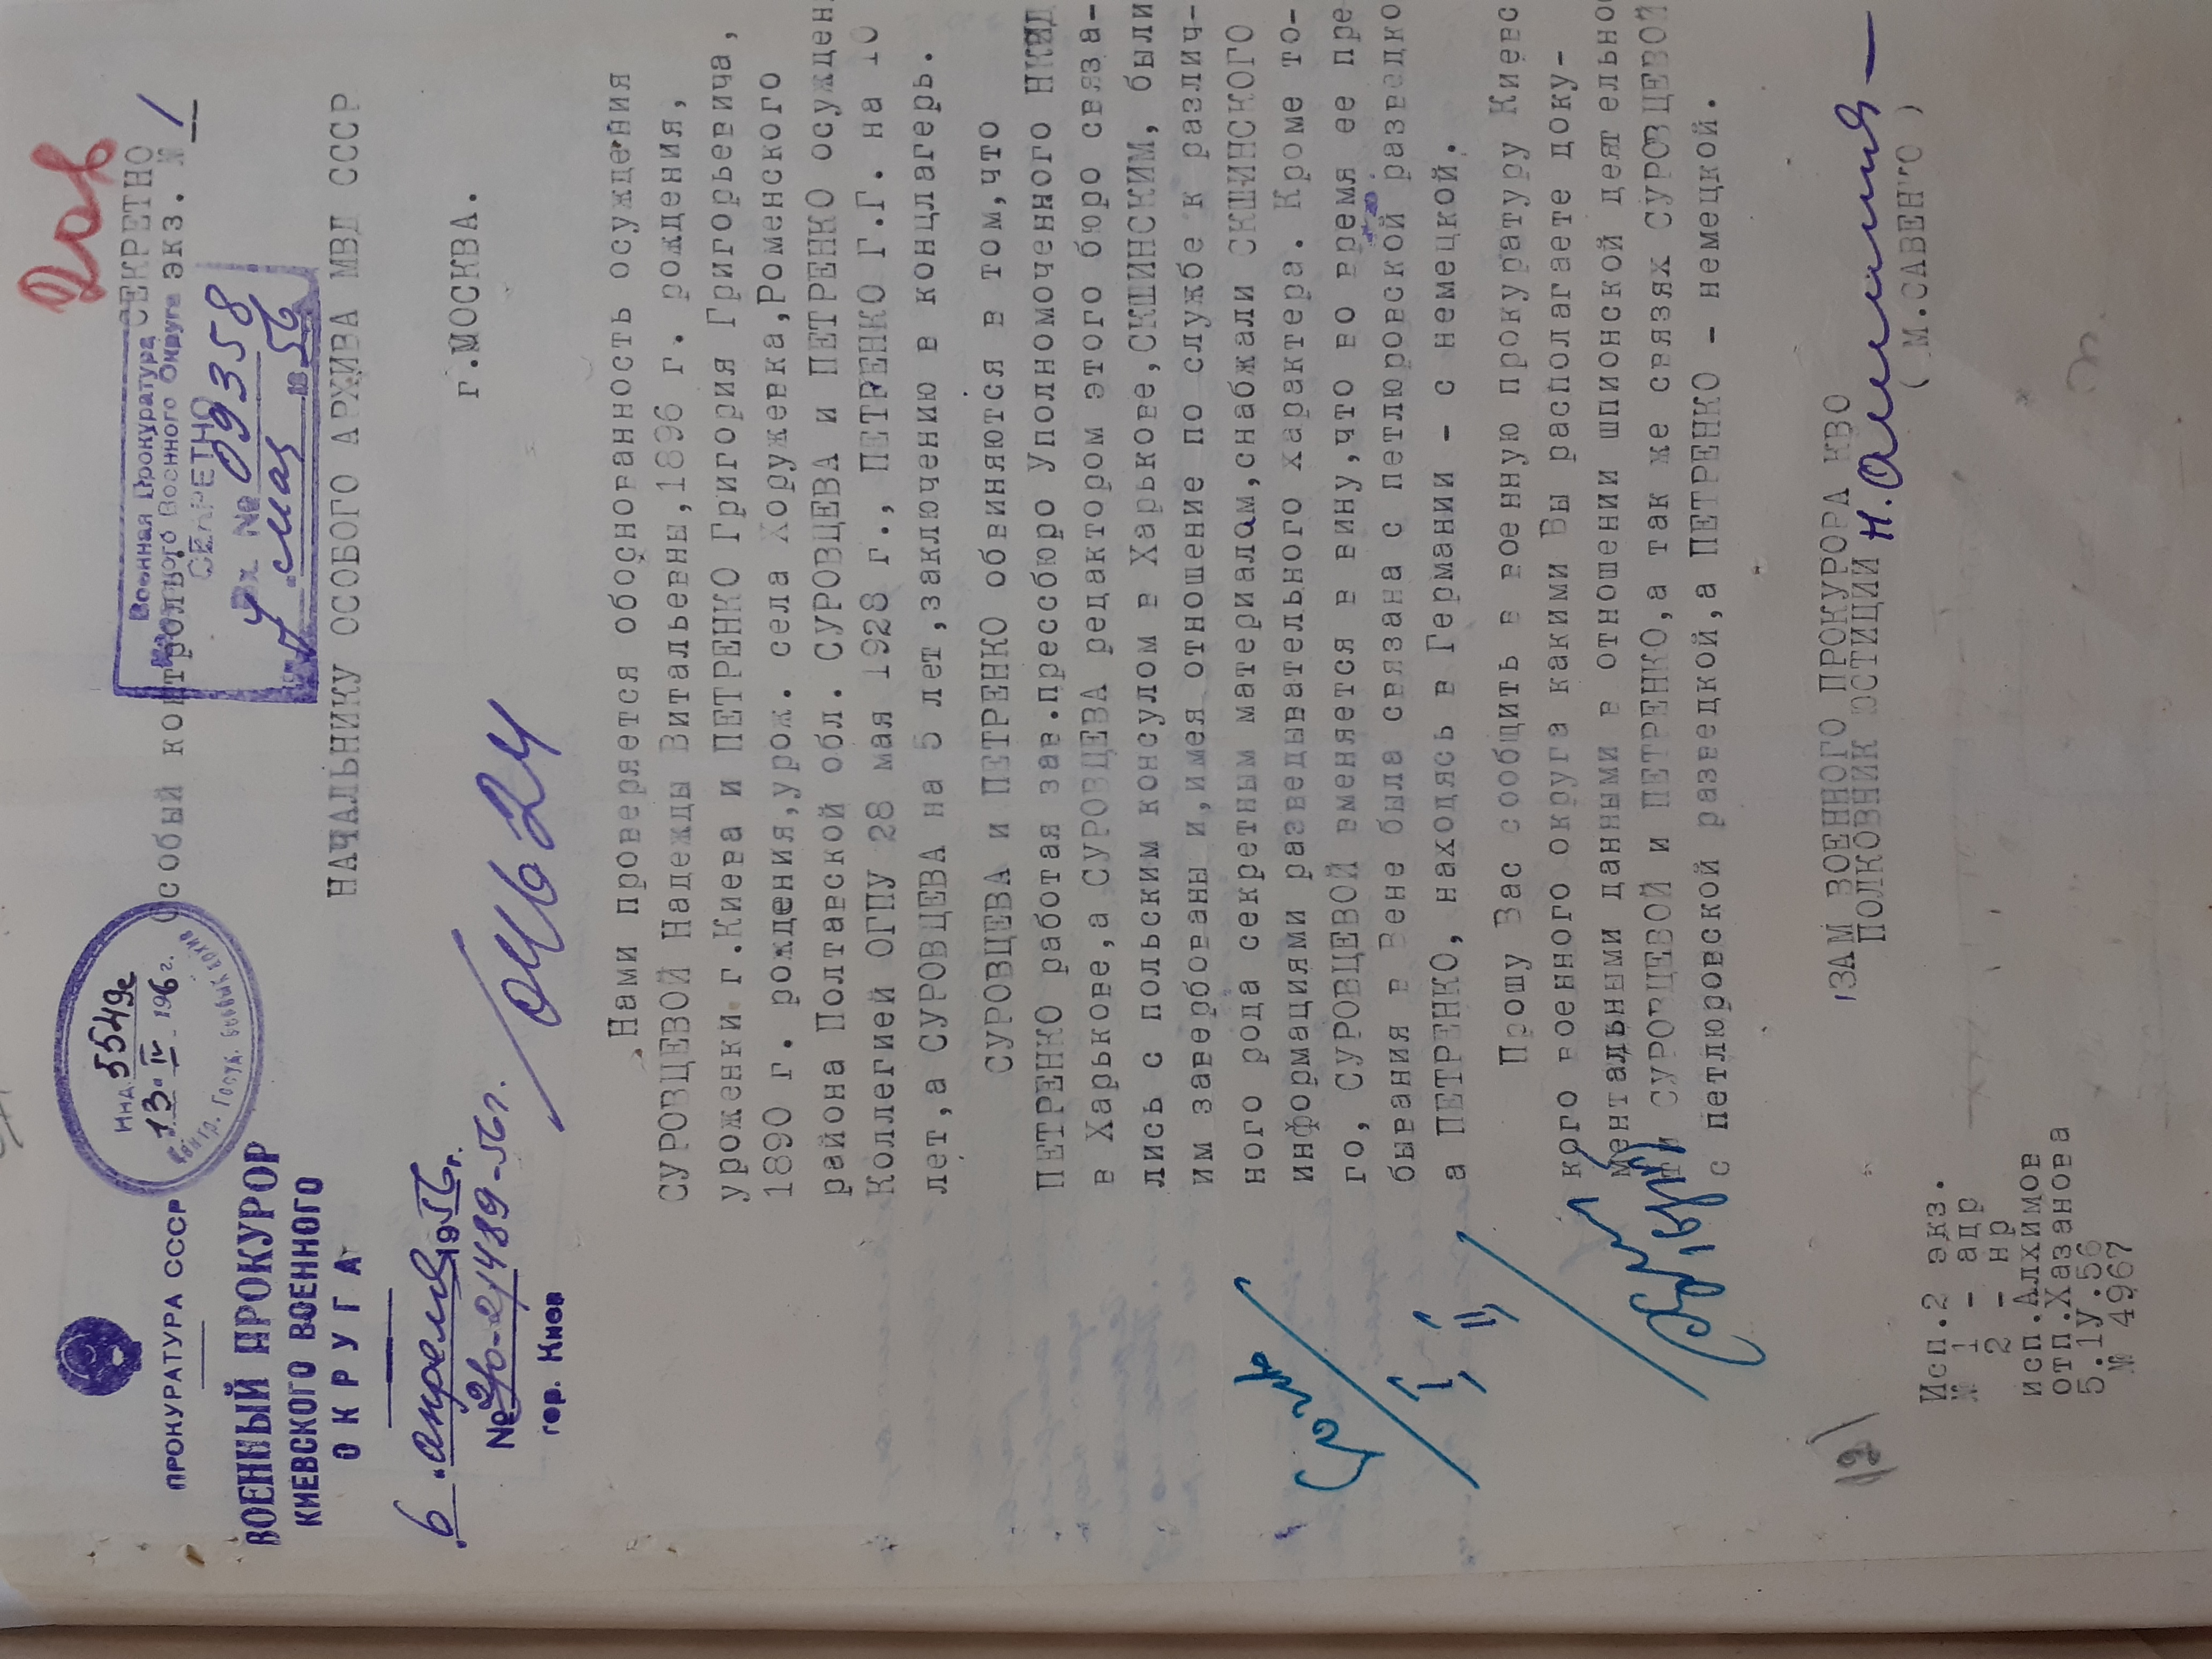 ПРОКУРАТУРА СССР
ВОЕННЫЙ ПРОКУРОР
КИЕВСКОГО ВОЕННОГО
ОКРУГА
6 апреля 1956 г.
гор. Киев
Инд. 5549с
13 IV 1956 г.
Особый контроль.
СЕКРЕТНО
экз. № 1
Военная Прокуратура
Киевского Военного Округа
СЕКРЕТНО
Вх № 09358
4 мая 1956
0462ч
НАЧАЛЬНИКУ ОСОБОГО АРХИВА МВД СССР
г.МОСКВА.
Нами проверяется обоснованность осуждения
СУРОВЦЕВОЙ Надежды Витальевны,1896 г. рождения,
уроженки г.Киева и ПЕТРЕНКО Григория Григорьевича,
1890 г. рождения,урож. села Хоружевка,Роменского
района Полтавской обл. СУРОВЦЕВА и ПЕТРЕНКО осужден
Коллегией ОГПУ 28 мая 1928 г., ПЕТРЕНКО Г.Г. на 10
лет,а СУРОВЦЕВА на 5 лет,заключению в концлагерь.
СУРОВЦЕВА и ПЕТРЕНКО обвиняются в том,что
ПЕТРЕНКО работая зав.прессбюро Уполномоченного НКИД
в Харькове,а СУРОВЦЕВА редактором этого бюро связа-
лись с польским консулом в Харькове,СКШИНСКИМ, были
им завербованы и,имея отношение по службе к различ-
ного рода секретным материалам,снабжали СКШИНСКОГО
информациями разведывательного характера. Кроме то-
го, СУРОВЦЕВОЙ вменяется в вину,что во время ее пре
бывания в Вене была связана с петлюровской разведко
а ПЕТРЕНКО, находясь в Германии - с немецкой.
Прошу Вас сообщить в военную прокуратуру Киевс
кого военного округа какими Вы располагаете доку-
ментальными данными в отношении шпионской деятельно
ти СУРОВЦЕВОЙ и ПЕТРЕНКО,а так же связях СУРОВЦЕВОЙ
с петлюровской разведкой,а ПЕТРЕНКО - немецкой.
ЗАМ ВОЕННОГО ПРОКУРОРА КВО
ПОЛКОВНИК ЮСТИЦИИ
( М.САВЕНКО )
Исп.2 экз.
№ 1 - адр
2 - нр
исп.Алхимов
отп.Хазанова
5.1У.56
№ 4967